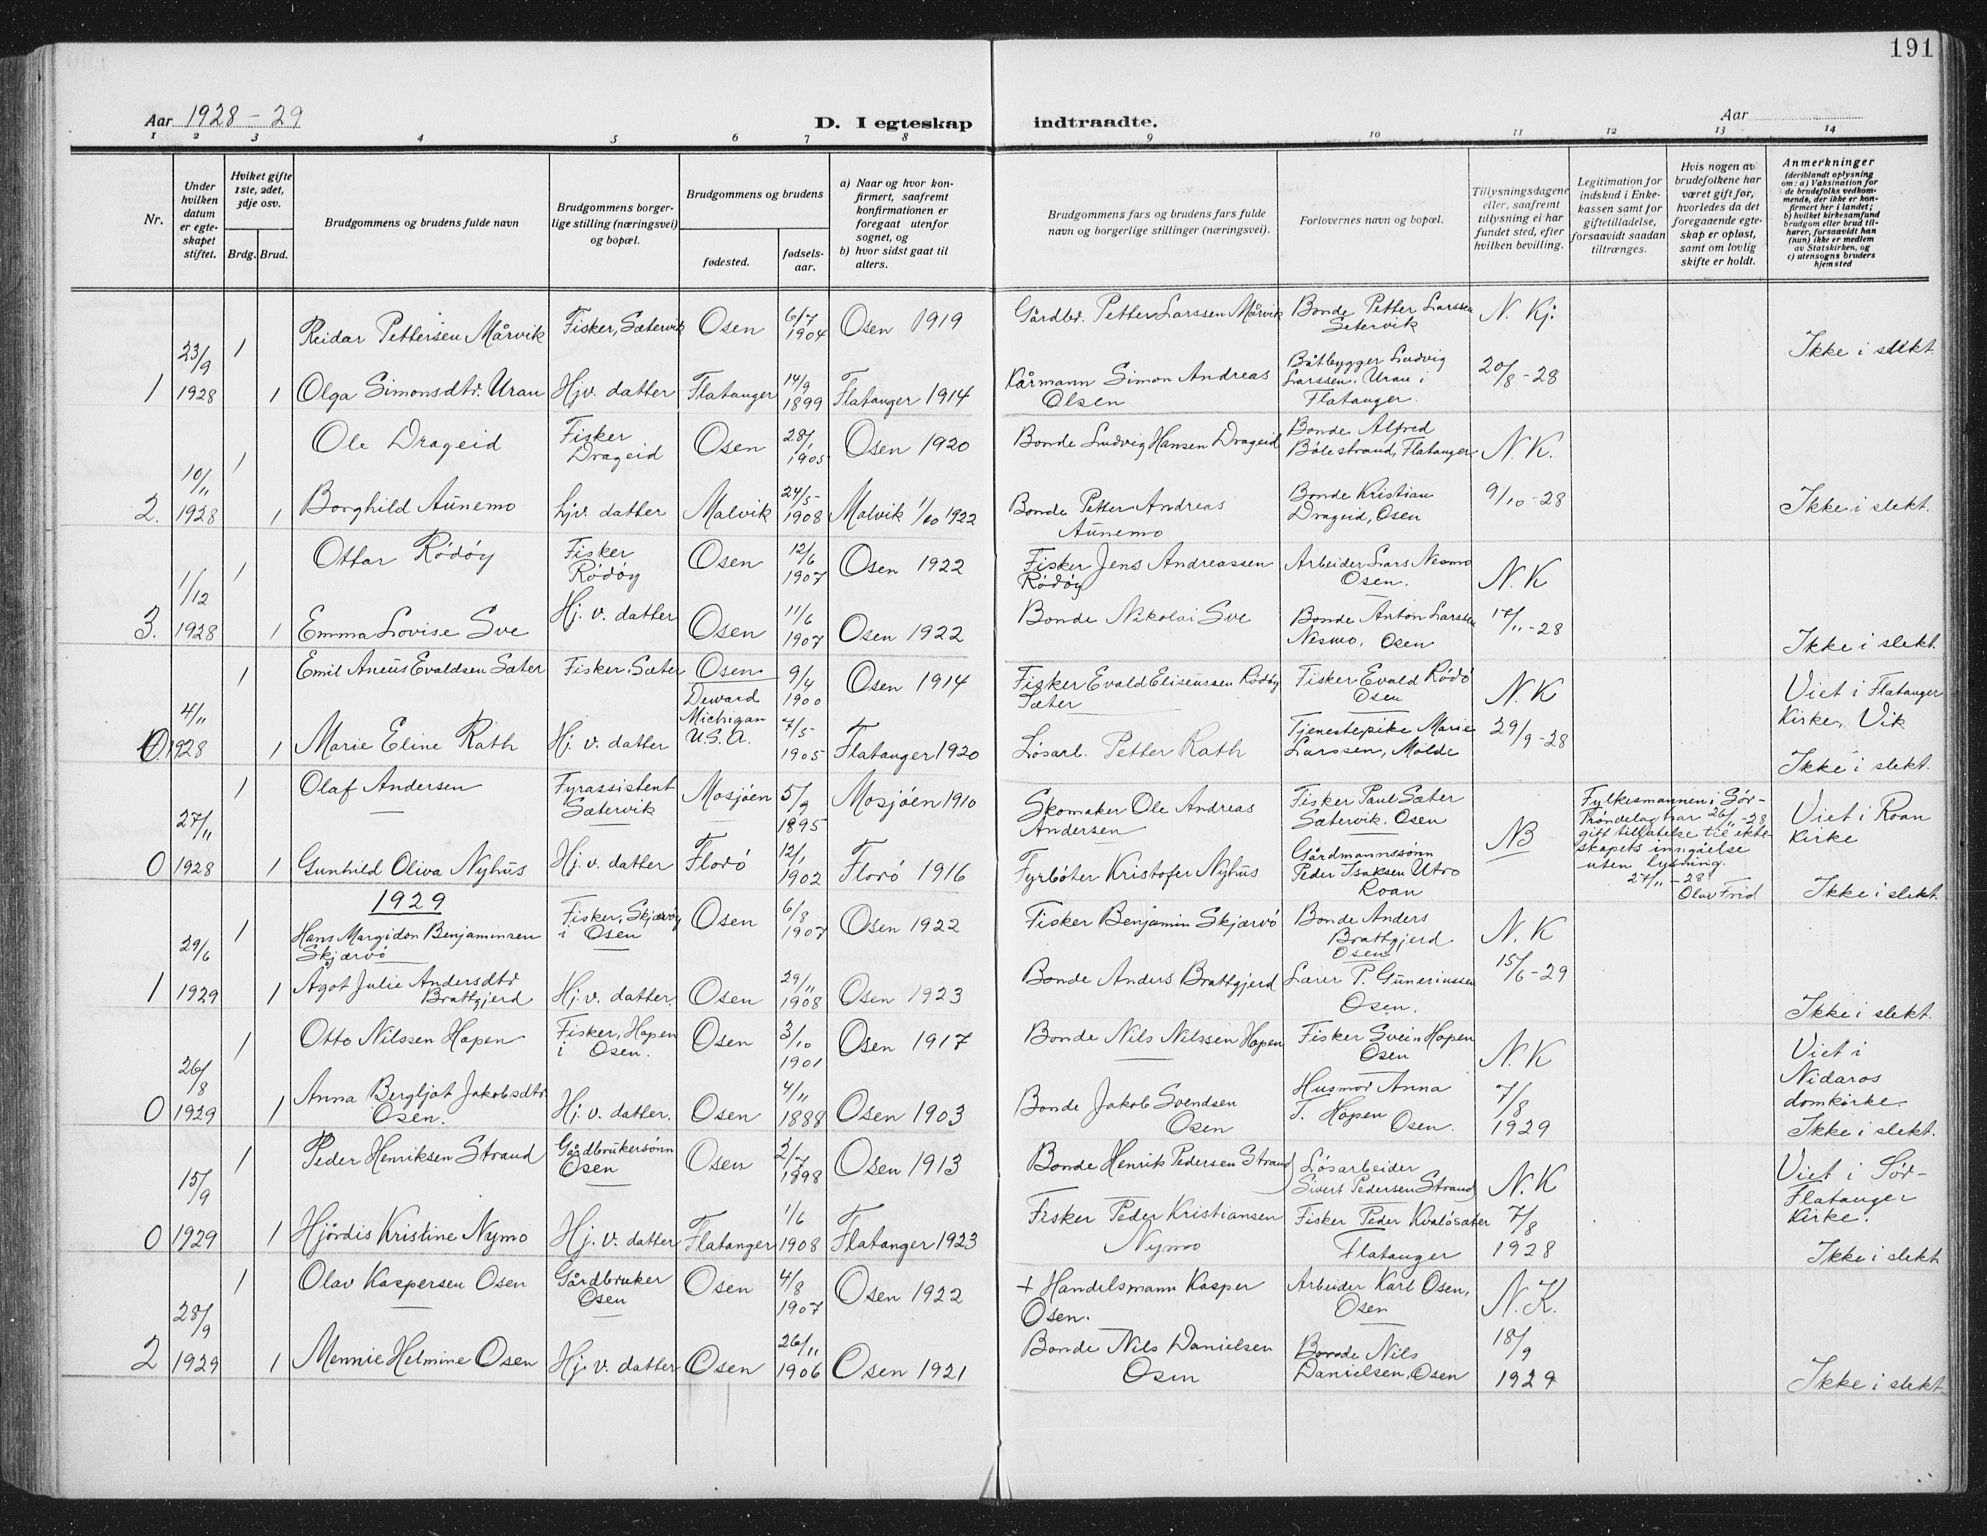 191
Aar 1928 - 29
D. I egteskap indtraadte.
Aar
1 2 3 4 5 6 7 8 9 10 11 12 13 14
Nr.
Under hvilken datum er egteskapet stiftet.
Hviket gifte 1ste, 2det, 3dje osv.
Brdg. Brud.
Brudgommens og brudens fulde navn
Brudgommens borgerlige stilling (næringsvei) og bopæl.
Brudgommens og brudens
fødested.
fødsels-aar.
a) Naar og hvor konfirmert, saafremt konfirmationen er foregaat utenfor sognet, og
b) hvor sidst gaat til alters.
Brudgommens fars og brudens fars fulde navn og borgerlige stillinger (næringsvei).
Forlovernes navn og bopæl.
Tillysningsdagene eller, saafremt tillysning ei har fundet sted, efter hvilken bevilling.
Legitimation for indskud i Enkekassen samt for giftetilladelse, forsaavidt saadan tiltrænges.
Hvis nogen av brudefolkene har været gift før, hvorledes da det foregaaende egteskap er opløst, samt om lovlig skifte er holdt.
Anmerkninger (deriblandt oplysning om: a) Vaksination for de brudefolks vedkommende, der ikke er konfirmert her i landet; b) hvilket kirkesamfund brudgom eller brud tilhører, forsaavidt han (hun) ikke er medlem av Statskirken, og c) utensogns bruders hjemsted
1 23/9 1928 1 Reidar Pettersen Mårvik Fisker, Sætervik Osen 6/7 1904 Osen 1919 Gårdbr. Petter Larssen Mårvik Bonde Petter Larssen Setervik N. Kj.
1 Olga Simonsdtr. Urau Hjv. datter Flatanger 14/9 1899 Flatanger 1914 Kårmann Simon Andreas Olsen Båtbygger Ludvig Larssen. Urau i Flatanger. 20/8 - 28 Ikke i slekt.
2. 10/11 1928 1 Ole Drageid Fisker Drageid Osen 28/1 1905 Osen 1920 Bonde Ludvig Hansen Drageid Bonde Alfred Bölestraud, Flatanger N. K.
1 Borghild Aunemo hjv. datter Malvik 24/5 1908 Malvik 1/10 1922 Bonde Petter Andreas Aunemo Bonde Kristian Drageid, Osen 9/10 - 28 Ikke i slekt.
3. 1/12 1928 1 Ottar Rödöy Fisker Rödöy Osen 12/6 1907 Osen 1922 Fisker Jens Andreassen Rödöy Arbeider Lars Nesmo Osen. N. K
1 Emma Lovise Sve Hj. v. datter Osen 11/6 1907 Osen 1922 Bonde Nikolai Sve Bonde Anton Larssen Nesmo, Osen 17/11 - 28 Ikke i slekt.
0 4/11 1928 1 Emil Aneus Evaldsen Sæter Fisker. Sæter Osen 9/4 1900 Osen 1914 Fisker Evald Eliseussen Rödöy Sæter Fisker Evald Rödö Osen N. K Viet i Flatanger Kirke, Vik
1 Marie Eline Rath Hj. v. datter Deward Michigan U.S.A. 7/5 1905 Flatanger 1920 Løsarb. Petter Rath Tjenestepike Marie Larssen, Molde 29/9 - 28 Ikke i slekt.
0 27/11 1928 1 Olaf Andersen Fyrassistent Sætervik Mosjøen 5/9 1895 Mosjøen 1910 Skomaker Ole Andreas Andersen Fisker Paul Sæter Sætervik. Osen NB Fylkesmannen i Sør-Trøndelag har 26/11 - 28 gitt tillatelse til ekteskapets inngåelse uten lysning. 27/11 - 28 Olav Frid Viet i Roan Kirke
1 Gunhild Oliva Nyhus Hj. v. datter Florö 12/1 1902 Florö 1916 Fyrbøter Kristofer Nyhus Gårdmannssønn Peder Isaksen Utro Roan Ikke i slekt.
1929
1 29/6 1929 1 Hans Margidon Benjaminsen Skjærvö Fisker, Skjærvöy i Osen Osen 6/8 1907 Osen 1922 Fisker Benjamin Skjærvö Bonde Anders Brattgjerd Osen N. K
1 Agot Julie Andersdtr Brattgjerd Hj. v. datter Osen 29/11 1908 Osen 1923 Bonde Anders Brattgjerd Lærer P. Guneriussen Osen. 15/6 - 29 Ikke i slekt.
0 26/8 1929 1 Otto Nilssen Hopen Fisker, Hopen i Osen. Osen 3/10 1901 Osen 1917 Bonde Nils Nilssen Hopen Fisker Svein Hopen Osen N. K Viet i Nidaros domkirke.
1 Anna Bergljot Jakobsdtr Osen. Hj. v. datter. Osen 4/11 1888 Osen 1903 Bonde Jakob Svendsen Osen Husmor Anna T. Hopen Osen. 7/8 1929 Ikke i slekt.
0 15/9 1929 1 Peder Henriksen Strand Gårdbrukersönn Osen Osen 2/7 1898 Osen 1913 Bonde Henrik Pedersen Strand Løsarbeider Sivert Pedersen Strand N. K Viet i Sør-Flatanger Kirke.
1 Hjördis Kristine Nymo Hj. v. datter Flatanger 1/6 1908 Flatanger 1923 Fisker Peder Kristiansen Nymo Fisker Peder Kvalösæter Flatanger 7/8 1928 Ikke i slekt
2 28/9 1929 1 Olav Kaspersen Osen Gårdbruker Osen Osen 4/8 1907 Osen 1922 + Handelsmann Kasper Osen. Arbeider Karl Osen, Osen N. K.
1 Mennie Helmine Osen Hj. v. datter Osen 26/11 1906 Osen 1921 Bonde Nils Danielsen Osen Bonde Nils Danielsen, Osen 18/9 1929 Ikke i slekt